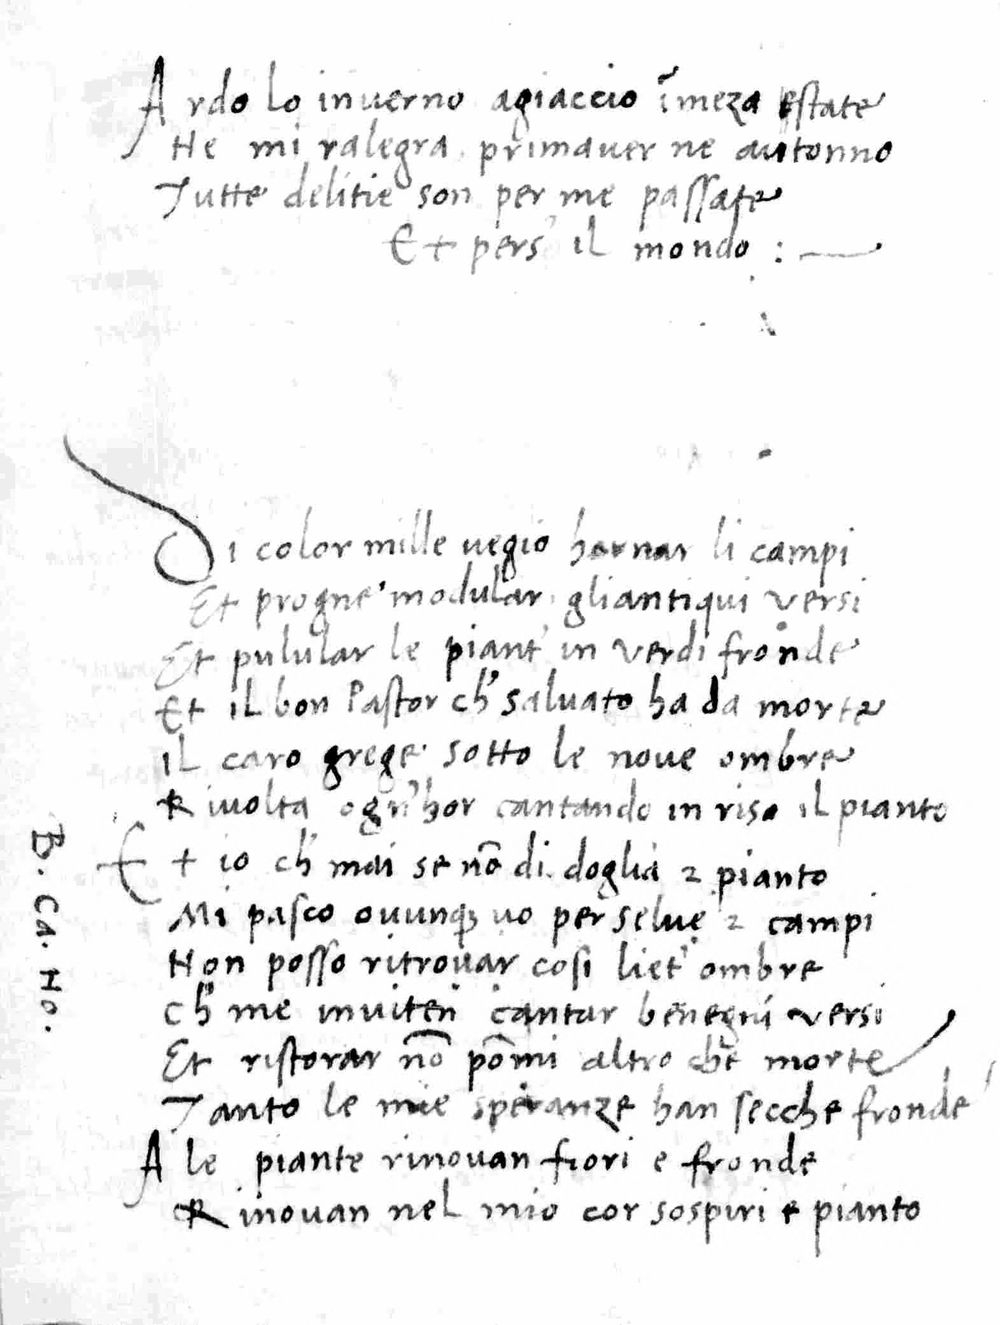 Ardo lo inuerno agiaccio ĩ meza estate
Ne mi ralegra primauer ne autonno
Tutte delitie son per me passate
Et pers' il mondo :
Di color mille uegio hornar li campi
Et progne modular gliantiqui versi
Et pulular le piant' in verdi fronde
Et il bon Pastor ch' saluato ha da morte
Il caro grege sotto le noue ombre
Riuolta ogn'hor cantando in riso il pianto
Et io ch' mai se nõ di doglia 2 pianto
Mi pasco ouunqꝫ uo per selue 2 campi
Non posso ritrouar cosi liet' ombre
Ch' me inuiten cantar benegni versi
Et ristorar nõ põmi altro che morte
Tanto le mie speranze han secche fronde
A le piante rinouan fiori e fronde
Rinouan nel mio cor sospiri e pianto
B. Ca. No.